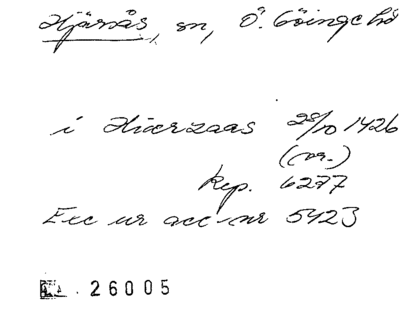 Hjärsås, sn, Ö. Göinge hd
i Hiærzaas 28/10 1426
(or.)
Rep. 6277
Exc ur acc-nr 5423
26005